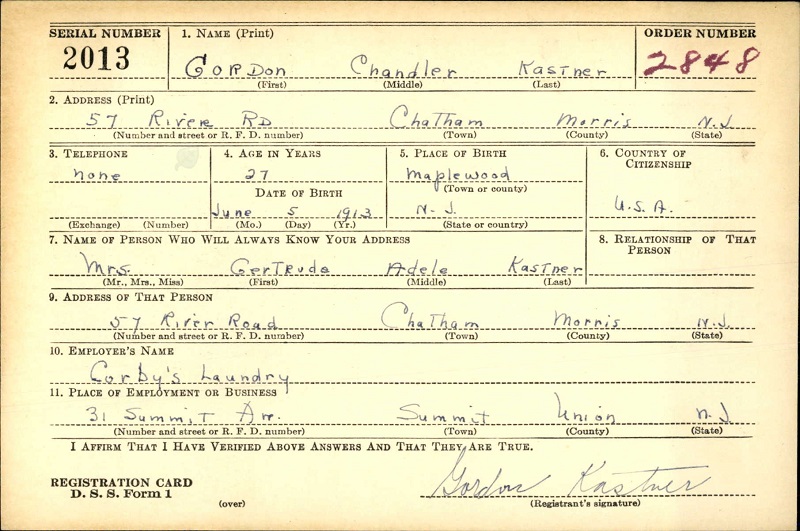 SERIAL NUMBER 1. NAME (Print) ORDER NUMBER
2013 GORDON Chandler Kastner 2848
(First) (Middle) (Last)
2. ADDRESS (Print)
57 River RD Chatham Morris N.J
(Number and street or R. F. D. number) (Town) (County) (State)
3. TELEPHONE 4. AGE IN YEARS 5. PLACE OF BIRTH 6. COUNTRY OF CITIZENSHIP
none 27 Maplewood
(Town or county)
DATE OF BIRTH
June 5 1913 N-J. U.S.A.
(Exchange) (Number) (Mo.) (Day) (Yr.) (State or country)
7. NAME OF PERSON WHO WILL ALWAYS KNOW YOUR ADDRESS 8. RELATIONSHIP OF THAT PERSON
Mrs. GerTrude Adele Kastner
(Mr., Mrs., Miss) (First) (Middle) (Last)
9. ADDRESS OF THAT PERSON
57 River Road Chatham Morris N.J.
(Number and street or R. F. D. number) (Town) (County) (State)
10. EMPLOYER'S NAME
Corby's Laundry
11. PLACE OF EMPLOYMENT OR BUSINESS
31 Summit Summit Union N.J
(Number and street or R. F. D. number) (Town) (County) (State)
I AFFIRM THAT I HAVE VERIFIED ABOVE ANSWERS AND THAT THEY ARE TRUE.
REGISTRATION CARD
D. S. S. Form 1 Gordon Kastner
(over) (Registrant's signature)